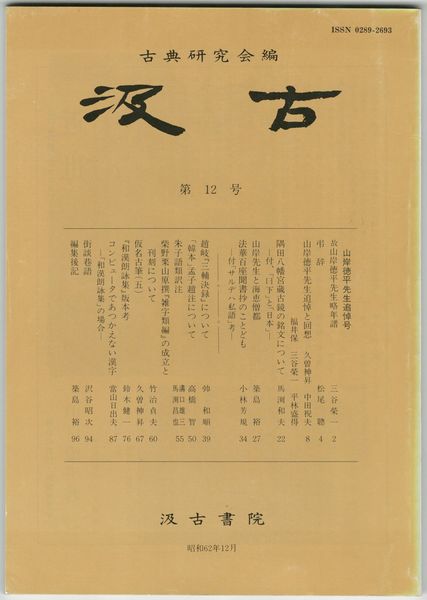 ISSN 0289-2693
古典研究会編
汲古
第12号
山岸徳平先生追悼号
故山岸徳平先生略年譜 三谷栄一 2
弔辞 松尾聰 4
山岸徳平先生追悼と回想 久曽神昇 中田祝夫 8
福井保 三谷栄一 平林盛得
隅田八幡宮蔵古鏡の銘文について 馬渕和夫 22
―付、「日下」と「日本」―
山岸先生と海恵僧都 築島裕 27
法華百座聞書抄のことども 小林芳規 34
―付「サルデハ私語」考―
趙岐「三輔決録」について 帥和順 39
「韓本」孟子趙注について 高橋智 50
朱子語類訳注 溝口雄三 馬渕昌也 55
柴野栗山原撰『雑字類編』の成立と
刊刻について 竹治貞夫 60
仮名古筆(五) 久曽神昇 67
『和漢朗詠集』版本考 鈴木健一 76
コンピュータであつかえない漢字 當山日出夫 87
―『和漢朗詠集』の場合―
街談巷語 沢谷昭次 94
編集後記 築島裕 96
汲古書院
昭和62年12月